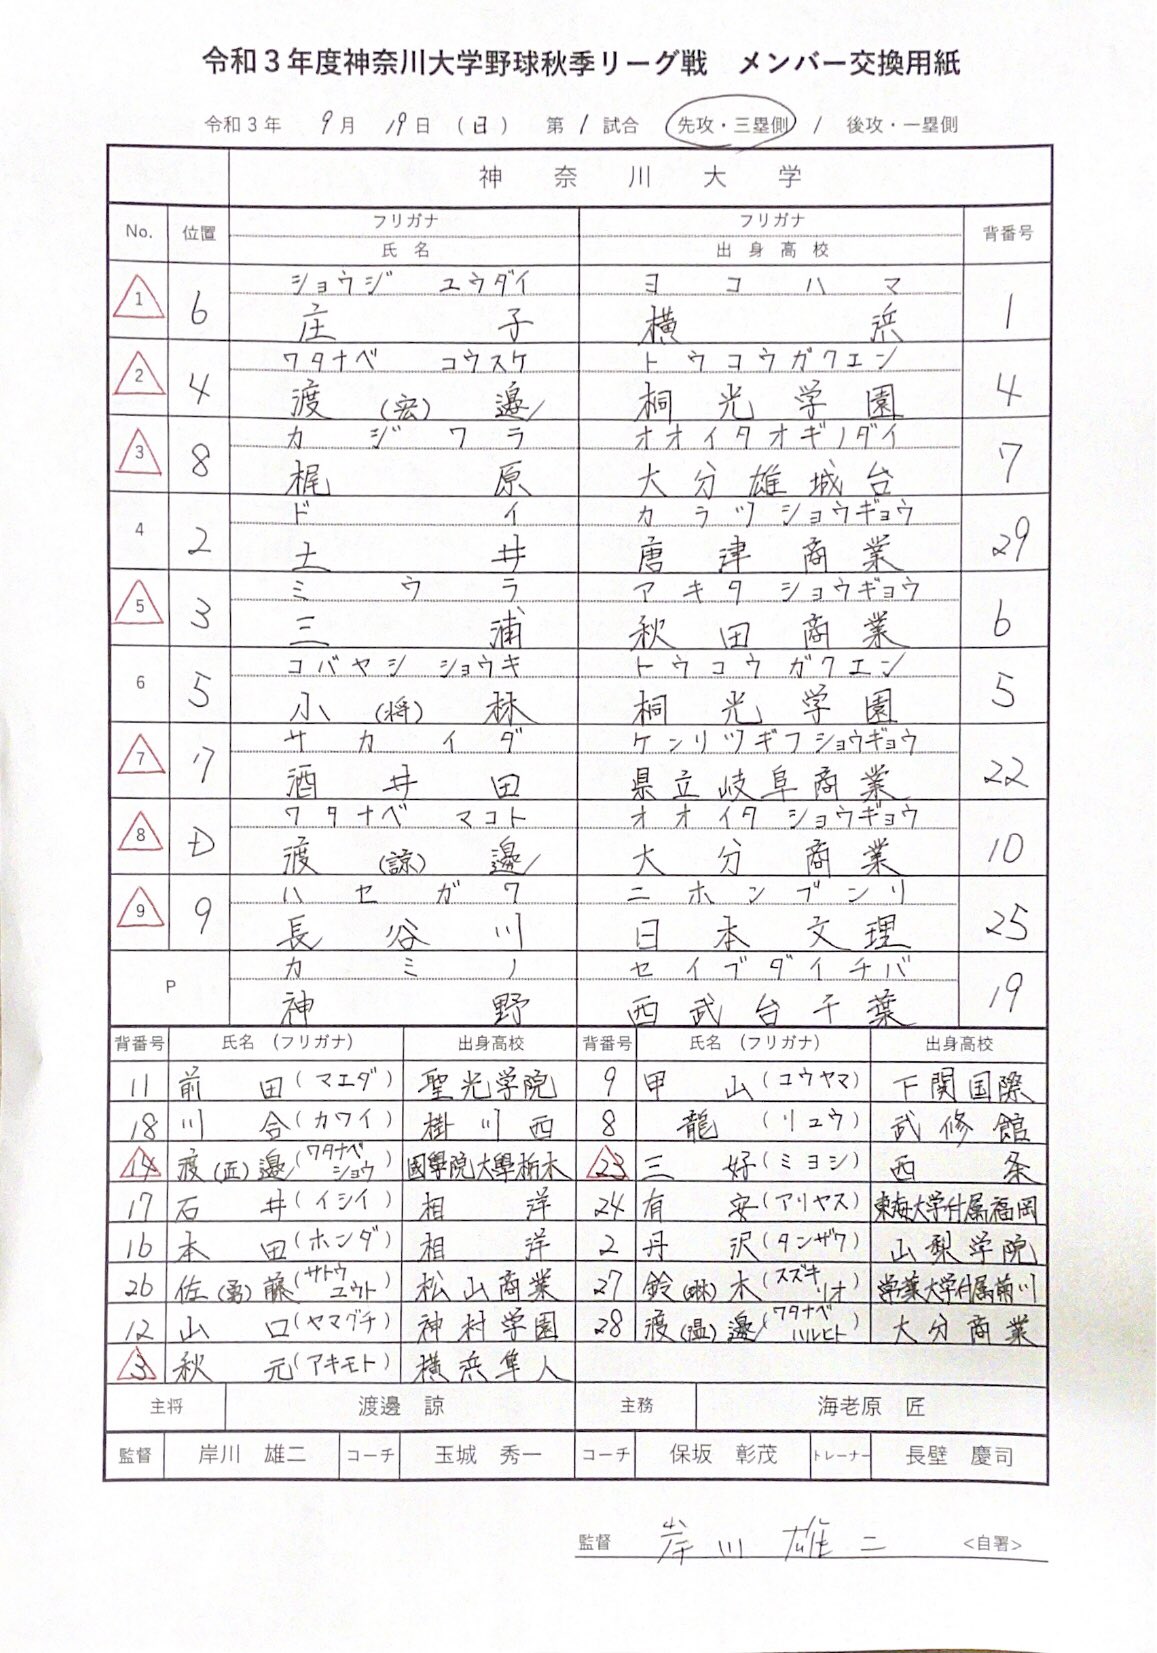 令和3年度神奈川大学野球秋季リーグ戦　メンバー交換用紙
令和3年 9月 19日 (日) 第1試合 先攻・三塁側 / 後攻・一塁側
神奈川大学
No. 位置 フリガナ フリガナ 背番号
氏名 出身高校
ショウジ ユウダイ ヨコハマ
1 6 庄子 横浜 1
ワタナベ コウスケ トウコウガクエン
2 4 渡(宏)邊 桐光学園 4
カジワラ オオイタオギノダイ
3 8 梶原 大分雄城台 7
ドイ カラツショウギョウ
4 2 土井 唐津商業 29
ミウラ アキタショウギョウ
5 3 三浦 秋田商業 6
コバヤシ ショウキ トウコウガクエン
6 5 小(将)林 桐光学園 5
サカイダ ケンリツギフショウギョウ
7 7 酒井田 県立岐阜商業 22
ワタナベ マコト オオイタショウギョウ
8 D 渡(諒)邊 大分商業 10
ハセガワ ニホンブンリ
9 9 長谷川 日本文理 25
カミノ セイブダイチバ
P 神野 西武台千葉 19
背番号 氏名(フリガナ) 出身高校 背番号 氏名(フリガナ) 出身高校
11 前田(マエダ) 聖光学院 9 甲山(コウヤマ) 下関国際
18 川合(カワイ) 掛川西 8 龍(リュウ) 武修館
14 渡(匠)邊(ワタナベ ショウ) 國學院大學栃木 23 三好(ミヨシ) 西条
17 石井(イシイ) 相洋 24 有安(アリヤス) 東海大学付属福岡
16 本田(ホンダ) 相洋 2 丹沢(タンザワ) 山梨学院
26 佐(勇)藤(サトウ ユウト) 松山商業 27 鈴(琳)木(スズキ リオ) 常葉大学付属菊川
12 山口(ヤマグチ) 神村学園 28 渡(温)邊(ワタナベ ハルヒト) 大分商業
3 秋元(アキモト) 横浜隼人
主将 渡邊 諒 主務 海老原 匠
監督 岸川 雄二 コーチ 玉城 秀一 コーチ 保坂 彰茂 トレーナー 長壁 慶司
監督 岸川雄二 <自署>